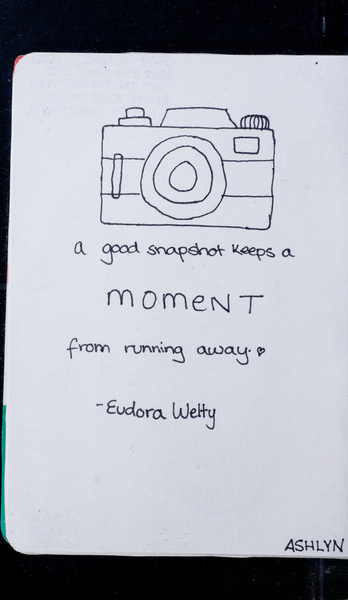 a good snapshot keeps a
MOMENT
from running away.
-Eudora Welty
ASHLYN